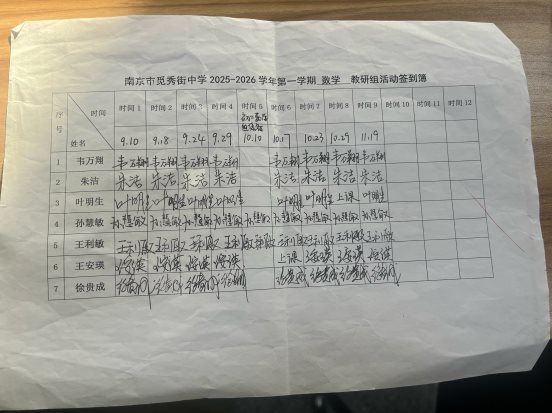 南京市觅秀街中学 2025-2026 学年第一学期 数学 教研组活动签到簿
序号 时间 姓名 时间 1 时间 2 时间 3 时间 4 时间 5 时间 6 时间 7 时间 8 时间 9 时间 10 时间 11 时间 12
9.10 9.18 9.24 9.29 10.10 10.17 10.23 10.29 11.19
1 韦万翔 韦万翔 韦万翔 韦万翔 韦万翔 韦万翔 韦万翔 韦万翔 韦万翔
2 朱洁 朱洁 朱洁 朱洁 朱洁 朱洁 朱洁 朱洁 朱洁
3 叶明生 叶明生 叶明生 叶明生 叶明生 叶明生 叶明生 上课 叶明生
4 孙慧敏 孙慧敏 孙慧敏 孙慧敏 孙慧敏 孙慧敏 孙慧敏 孙慧敏 孙慧敏 孙慧敏
5 王利敏 王利敏 王利敏 王利敏 王利敏 王利敏 王利敏 王利敏 王利敏
6 王安瑛 上课
7 徐贵成 徐贵成 徐贵成 徐贵成 徐贵成